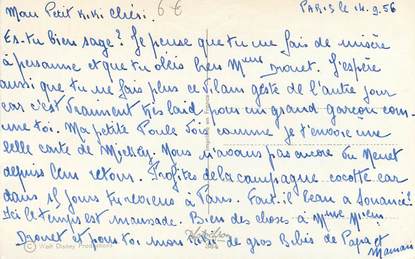 Mon Petit Kiki Chéri. 6€ PARIS le 14.9.56
Es-tu bien sage? Je pense que tu ne fais de misère
à personne et que tu obéis bien Mme Drouet. J'espère
aussi que tu ne fais plus ce vilain geste de l'autre jour
car c'est vraiment très laid pour un grand garçon com-
me toi. Ma petite Poule vois comme je t'envoie une
belle carte de Mickey. Nous n'avons pas encore vu
depuis leur retour. Profites de la campagne cocotte car
dans 15 jours tu reviens à Paris. Fait-il beau à
Ici le temps est maussade. Bien des choses à Mme Mr
Drouet et pour toi mon Kiki de gros Bibis de Papa et
Maman
© Walt Disney Productions